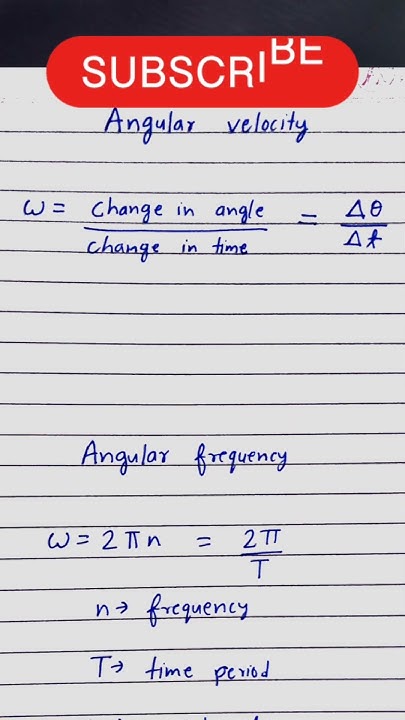 SUBSCRIBE
Angular velocity
ω = change in angle / change in time = Δθ / Δt
Angular frequency
ω = 2πn = 2π / T
n→ frequency
T→ time period